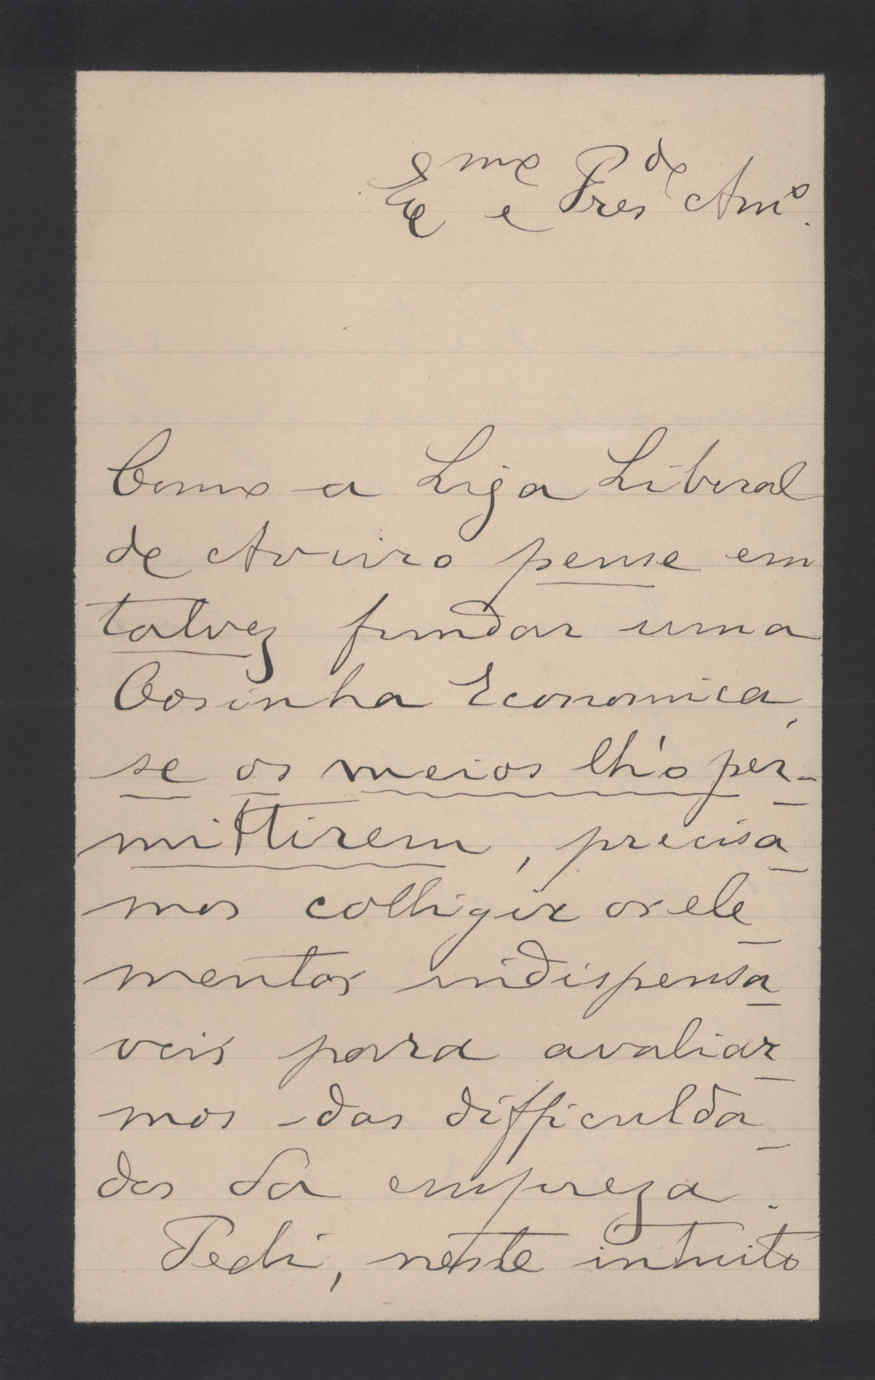 Ex^mo e Pres^de Am^o.
Como a Liga Liberal
de Aveiro pense em
talvez fundar uma
Cosinha Economica,
se os meios lh'o per-
mittirem, precisa-
mos colligir os ele-
mentos indispensa-
veis para avaliar-
mos das difficulda-
des da empreza.
Pedi, neste intuito